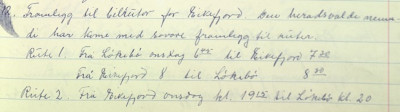 12. Framlegg til bilruter for Eikefjord. Den heradsvalde nemn-
di har kome med sovore framlegg til ruter.
Rute 1. Frå Løkebø onsdag 6 til Eikefjord 7
Frå Eikefjord 8 til Løkebø 8
Rute 2. Frå Eikefjord onsdag kl. 19 til Løkebø kl. 20